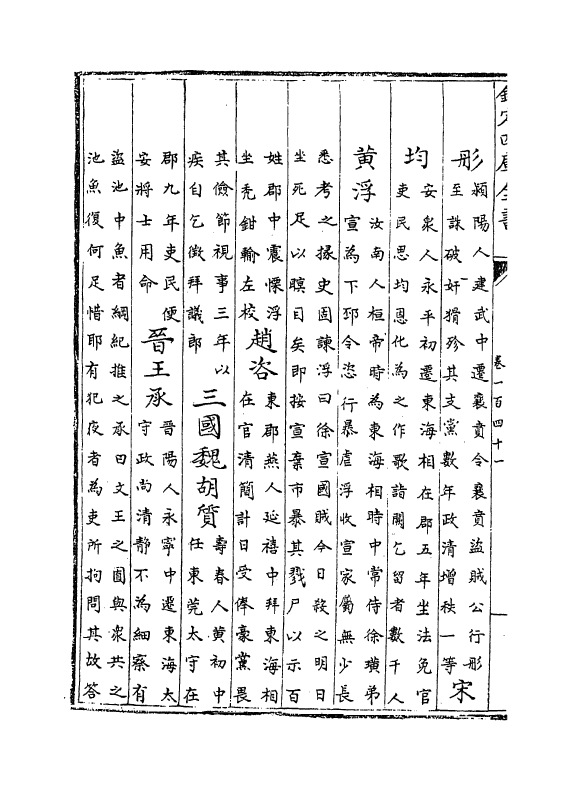 欽定四庫全書
卷一百四十一
肜
潁陽人建武中遷襄賁令襄賁盜賊公行肜
至誅破奸猾殄其支黨數年政清增秩一等
宋
均
安衆人永平初遷東海相在郡五年坐法免官
吏民思均恩化為之作歌詣闕乞留者數千人
黄浮
汝南人桓帝時為東海相時中常侍徐璜弟
宣為下邳令恣行暴虐浮收宣家屬無少長
悉考之掾史固諫浮曰徐宣國賊今日殺之明日
坐死足以瞑目矣即按宣棄市暴其戮尸以示百
姓郡中震慄浮
坐禿鉗輸左校
趙咨
東郡燕人延禧中拜東海相
在官清簡計日受俸豪黨畏
其儉節視事三年以
疾自乞徵拜議郎
三國魏胡質
壽春人黄初中
任東莞太守在
郡九年吏民便
安將士用命
晉王承
晉陽人永寧中遷東海太
守政尚清静不為細察有
盜池中魚者綱紀推之承曰文王之囿與衆共之
池魚復何足惜耶有犯夜者為吏所拘問其故答